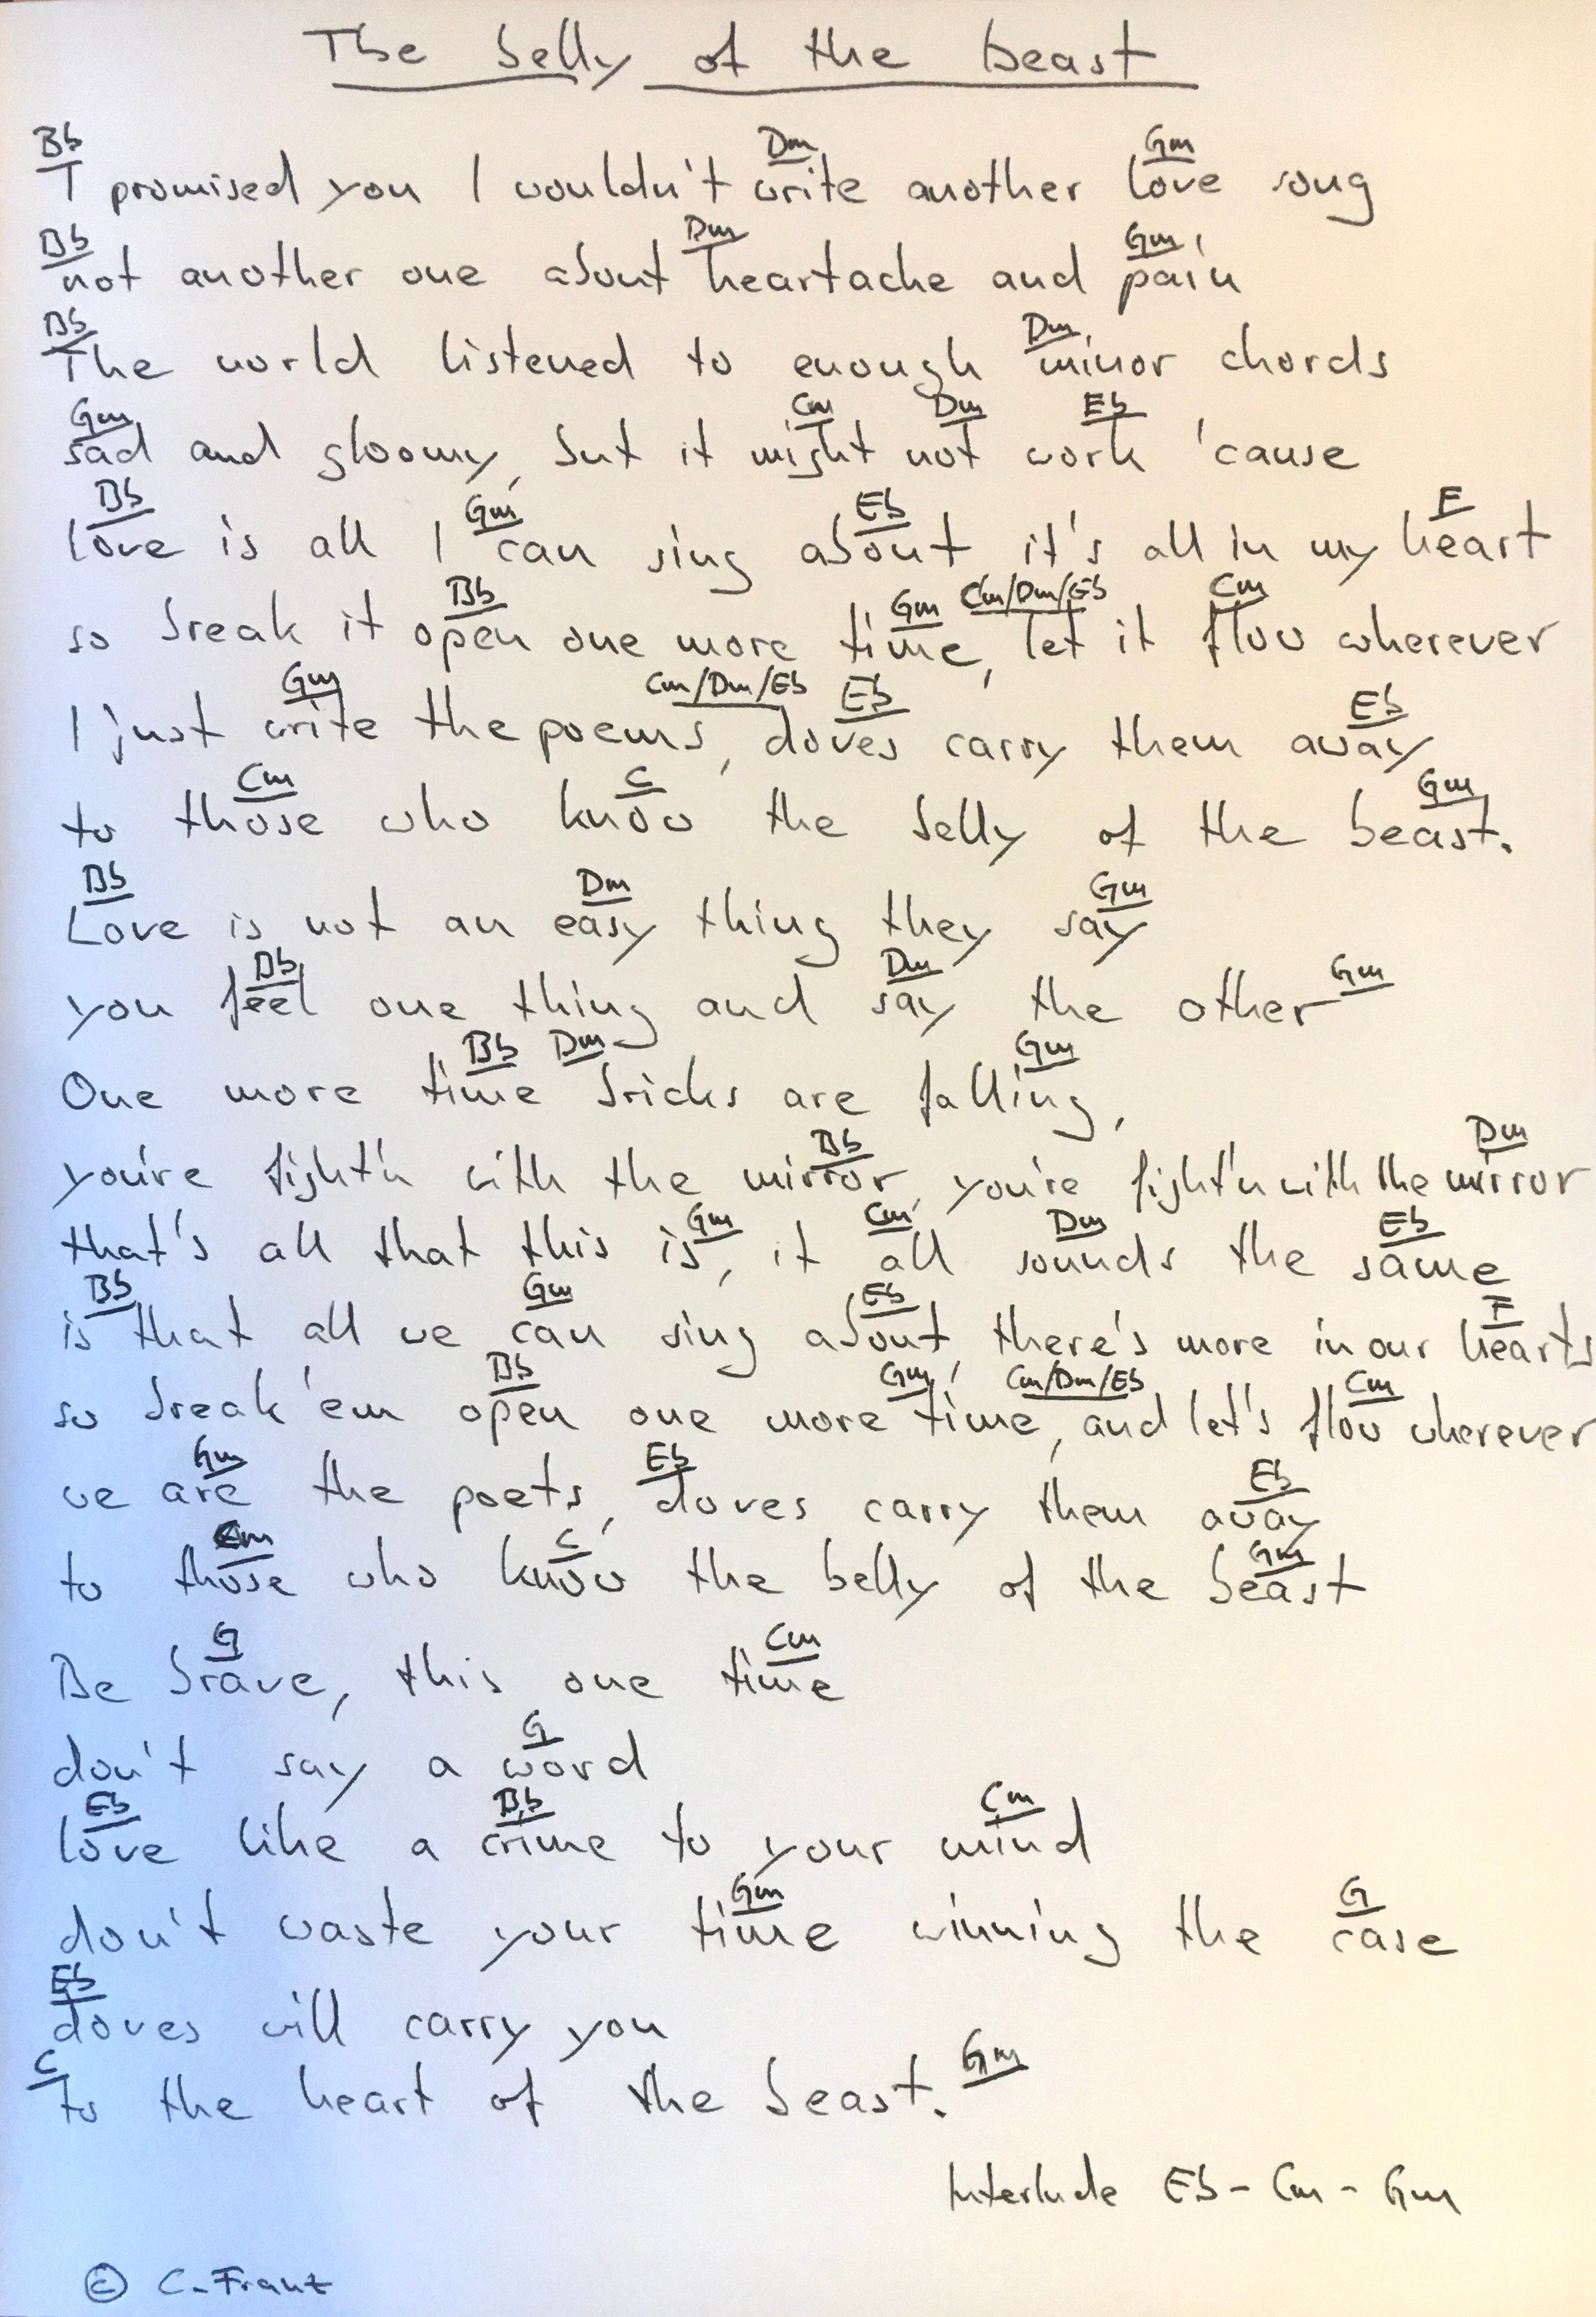 The belly of the beast
Bb Dm Gm
I promised you I wouldn't write another love song
Bb Dm Gm
not another one about heartache and pain
Bb Dm
The world listened to enough minor chords
Gm Cm Dm Eb
sad and gloomy, but it might not work 'cause
Bb Gm Eb F
love is all I can sing about it's all in my heart
Bb Gm Cm/Dm/Eb Cm
so break it open one more time, let it flow wherever
Gm Cm/Dm/Eb Eb Eb
I just write the poems, doves carry them away
Cm C Gm
to those who know the belly of the beast.
Bb Dm Gm
Love is not an easy thing they say
Bb Dm Gm
you feel one thing and say the other
Bb Dm Gm
One more time bricks are falling,
Bb Dm
you're fight'n with the mirror, you're fight'n with the mirror
Gm Cm Dm Eb
that's all that this is, it all sounds the same
Bb Gm Eb F
is that all we can sing about, there's more in our hearts
Bb Gm Cm/Dm/Eb Cm
so break 'em open one more time, and let's flow wherever
Gm Eb Eb
we are the poets, doves carry them away
Cm C Gm
to those who know the belly of the beast
G Cm
Be brave, this one time
G
don't say a word
Eb Bb Cm
love like a crime to your mind
Gm G
don't waste your time winning the case
Eb
doves will carry you
C Gm
to the heart of the beast.
Interlude Eb - Cm - Gm
© C. Franz